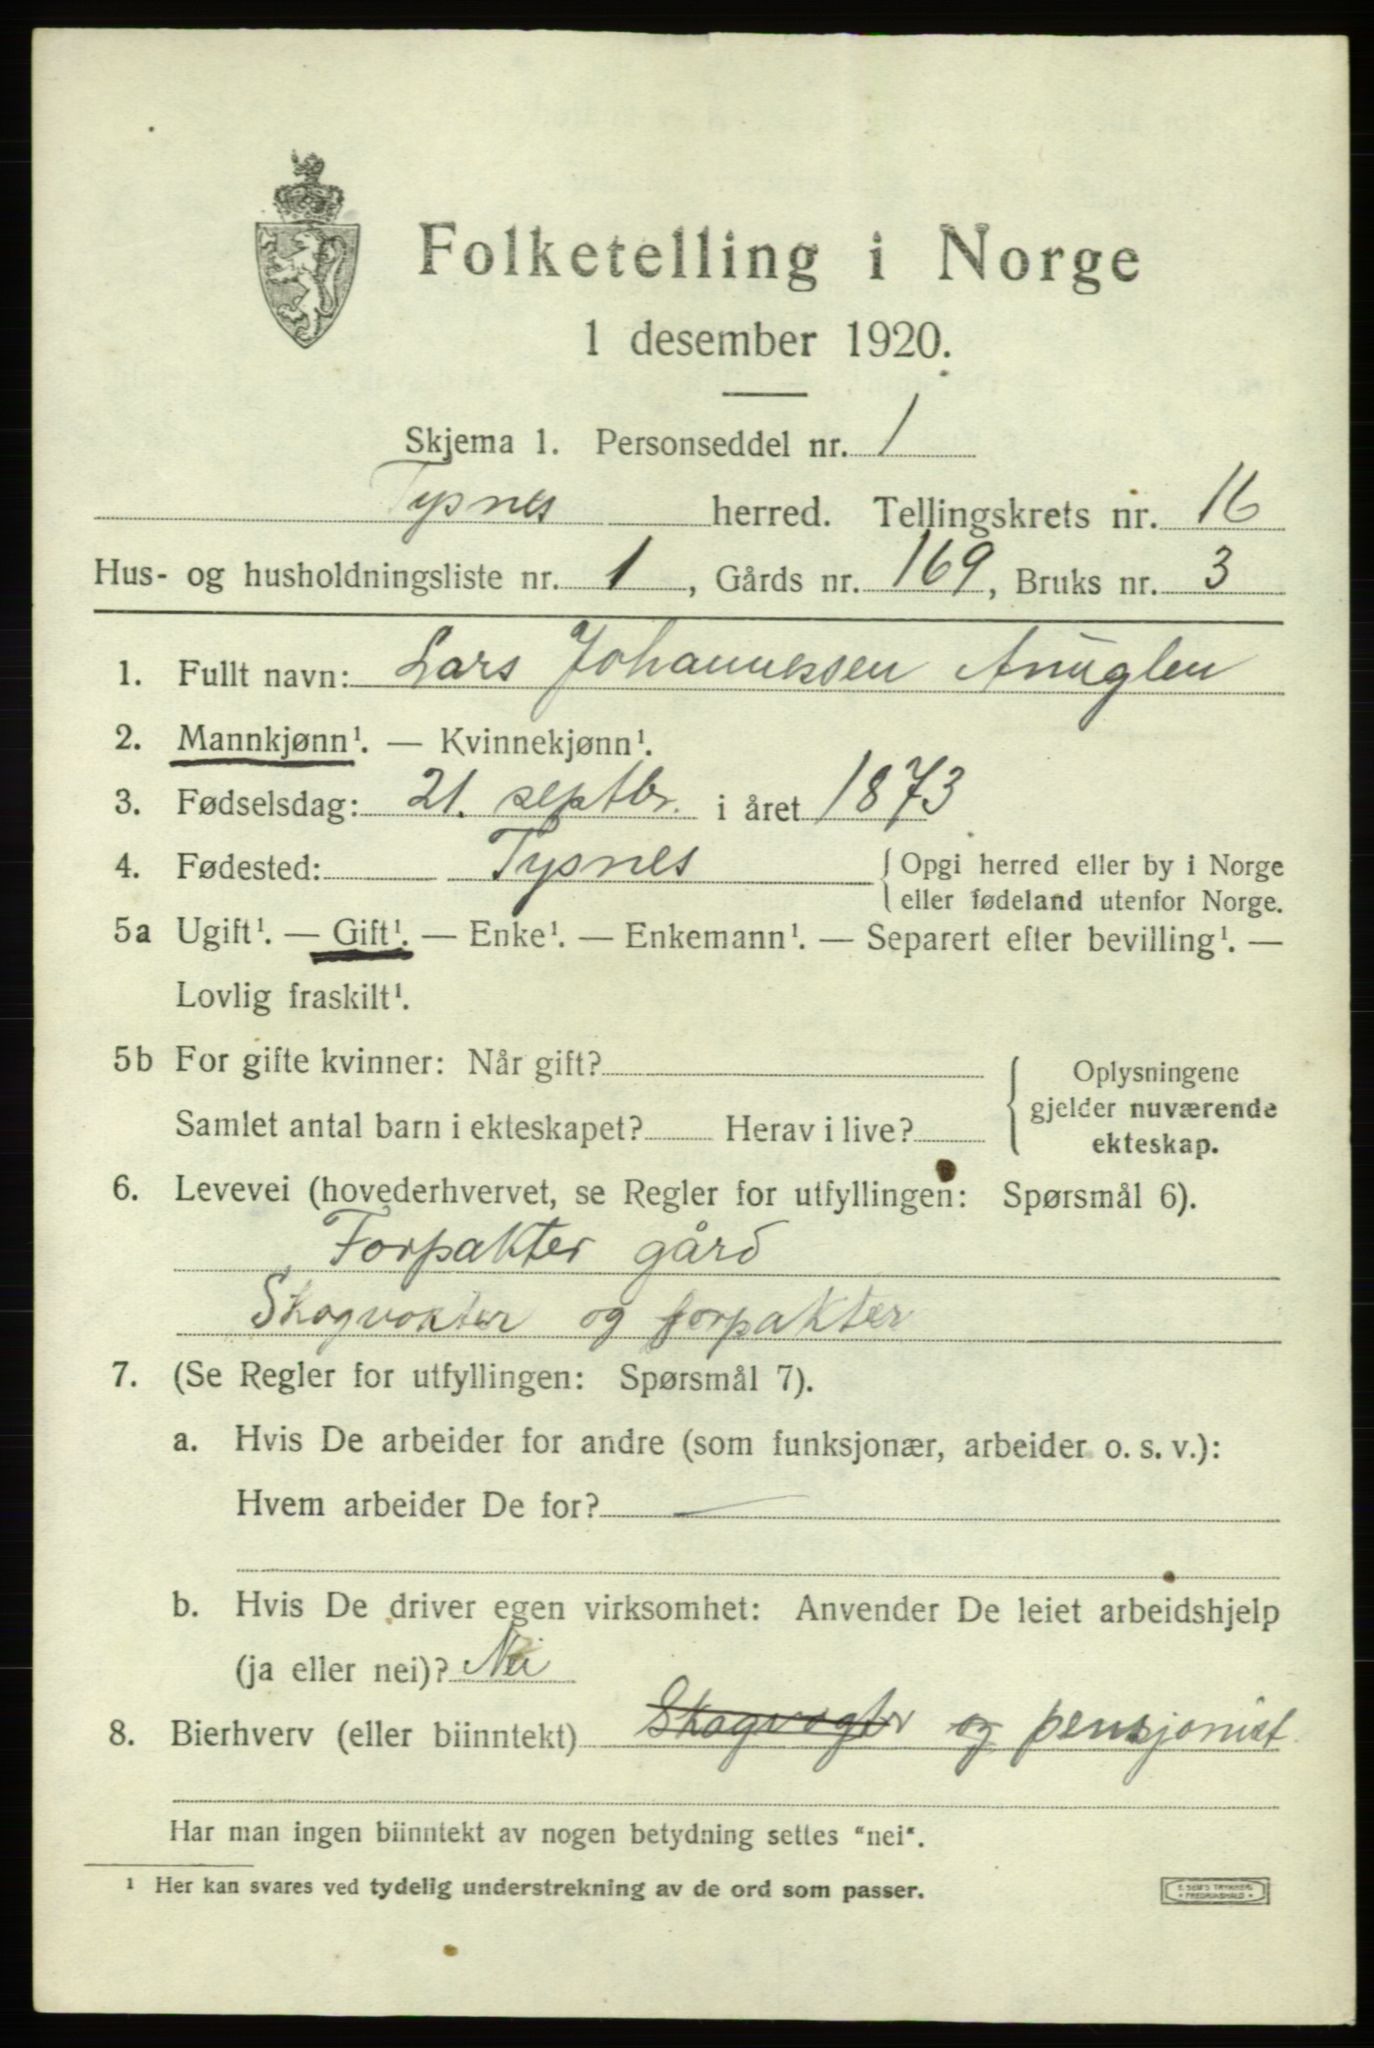 Folketelling i Norge
1 desember 1920.
Skjema 1. Personseddel nr. 1
Tysnes herred. Tellingskrets nr. 16
Hus- og husholdningsliste nr. 1, Gårds nr. 169, Bruks nr. 3
1. Fullt navn: Lars Johannessen Anuglen
2. Mannkjønn¹. — Kvinnekjønn¹.
3. Fødselsdag: 21. septbr. i året 1873
4. Fødested: Tysnes { Opgi herred eller by i Norge
eller fødeland utenfor Norge.
5a Ugift¹. — Gift¹. — Enke¹. — Enkemann¹. — Separert efter bevilling¹. —
Lovlig fraskilt¹.
5b For gifte kvinner: Når gift?
Samlet antal barn i ekteskapet? Herav i live?
Oplysningene
gjelder nuværende
ekteskap.
6. Levevei (hovederhvervet, se Regler for utfyllingen: Spørsmål 6).
Forpakter gård
Skogvokter og forpakter
7. (Se Regler for utfyllingen: Spørsmål 7).
a. Hvis De arbeider for andre (som funksjonær, arbeider o. s. v.):
Hvem arbeider De for? —
b. Hvis De driver egen virksomhet: Anvender De leiet arbeidshjelp
(ja eller nei)? Nei
8. Bierhverv (eller biinntekt) Skogvogter og pensjonist
Har man ingen biinntekt av nogen betydning settes "nei".
¹ Her kan svares ved tydelig understrekning av de ord som passer.
E. SEM'S TRYKKERI
• FREDRIKSHALD •